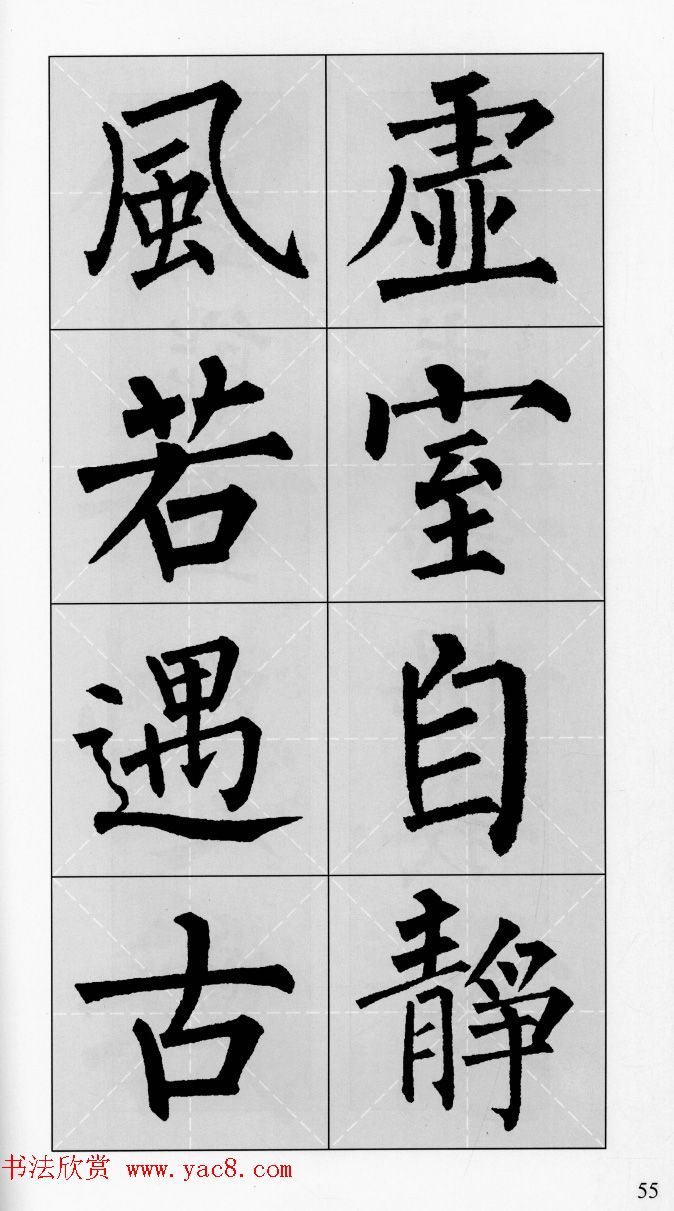 虛室自靜
風若遇古
书法欣赏 www.yac8.com
55